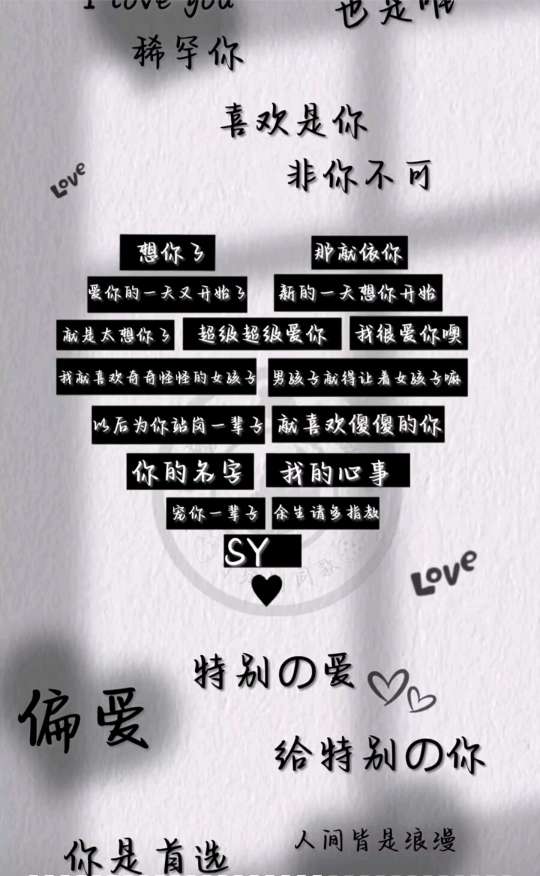 I love you
也是唯
稀罕你
喜欢是你
非你不可
Love
想你了 那就依你
爱你的一天又开始了 新的一天想你开始
就是太想你了 超级超级爱你 我很爱你噢
我就喜欢奇奇怪怪的女孩子 男孩子就得让着女孩子嘛
以后为你站岗一辈子 就喜欢傻傻的你
你的名字 我的心事
宠你一辈子 余生请多指教
SY
Love
特别の爱
偏爱
给特别の你
人间皆是浪漫
你是首选